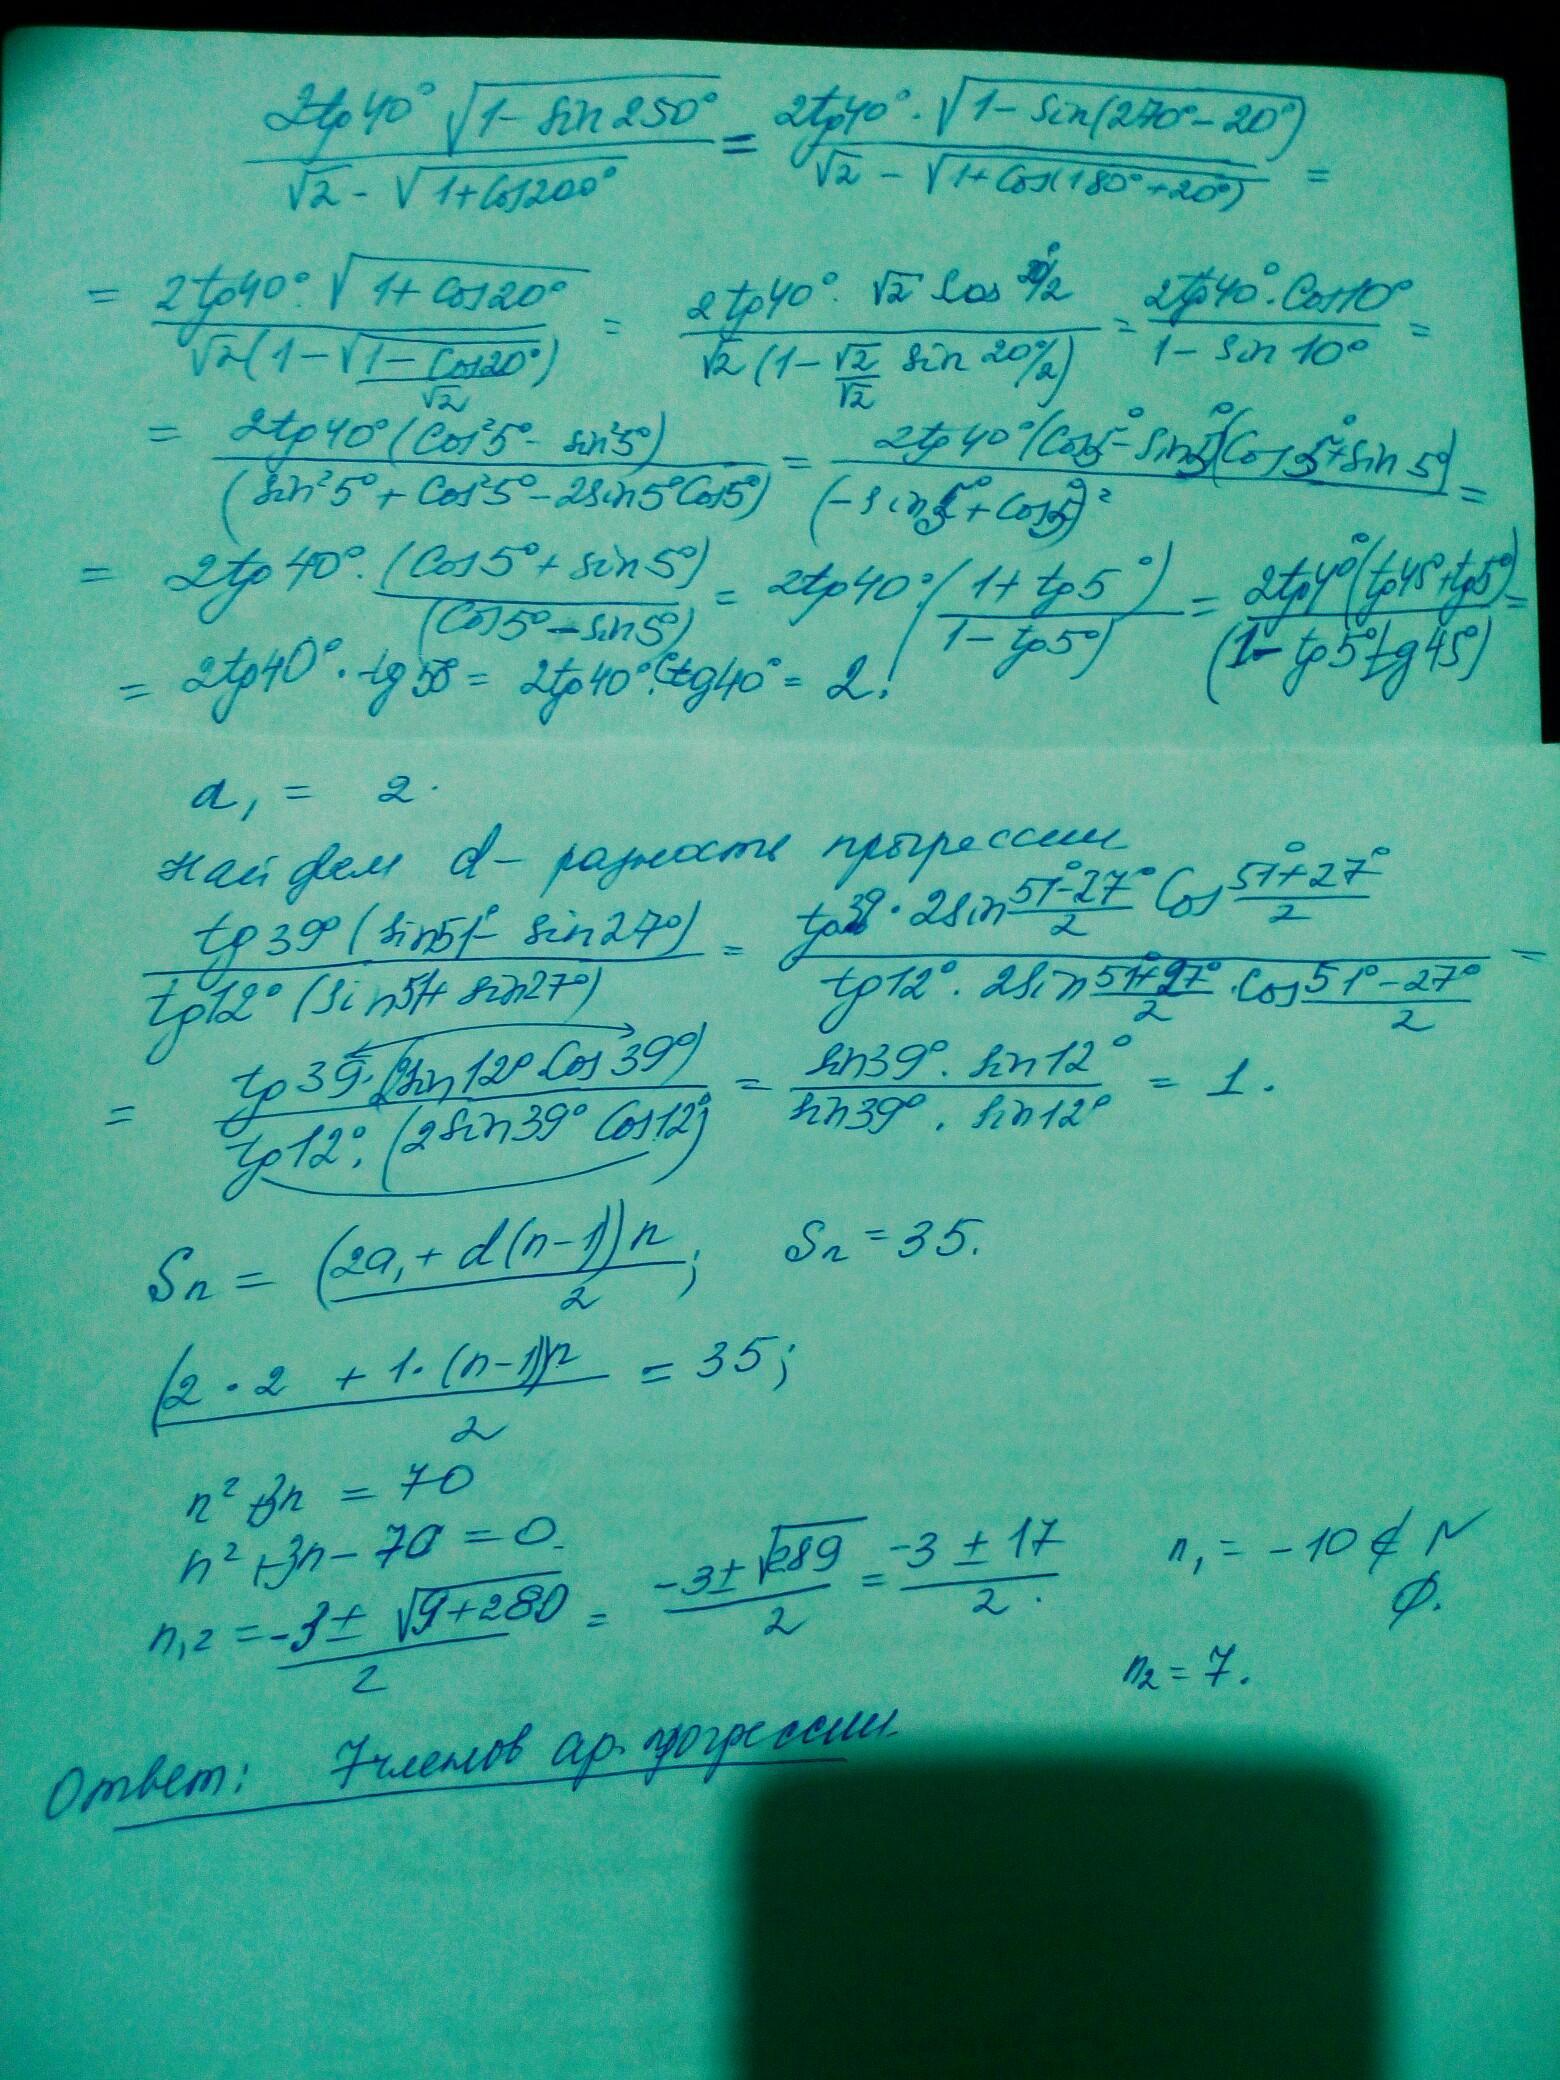 2tg40° √(1 - sin250°) / (√2 - √(1+cos200°)) = 2tg40° · √(1 - sin(270° - 20°)) / (√2 - √(1+cos(180°+20°))) =
= 2tg40° · √(1 + cos20°) / (√2(1 - √(1 - cos20°)/√2)) = 2tg40° · √2 cos 20°/2 / (√2 (1 - √2/√2 sin 20°/2)) = 2tg40° · cos10° / (1 - sin10°) =
= 2tg40° (cos²5° - sin²5°) / (sin²5° + cos²5° - 2sin5° cos5°) = 2tg40° (cos5° - sin5°)(cos5° + sin5°) / (-sin5° + cos5°)² =
= 2tg40° · (cos5° + sin5°) / (cos5° - sin5°) = 2tg40° · (1 + tg5°) / (1 - tg5°) = 2tg4° (tg45° + tg5°) / (1 - tg5° tg45°) =
= 2tg40° · tg50° = 2tg40° · ctg40° = 2.
a₁ = 2.
Найдем d - разность прогрессии
tg39° (sin51° - sin27°) / tg12° (sin51 + sin27°) = tg39° · 2sin (51° - 27°)/2 cos (51° + 27°)/2 / tg12° · 2sin (51° + 27°)/2 · cos (51° - 27°)/2 =
= tg39 · (2sin12° · cos39°) / tg12° · (2sin39° cos12°) = sin39° · sin12° / sin39° · sin12° = 1.
Sn = (2a₁ + d(n-1))n / 2 ; Sn = 35.
(2 · 2 + 1 · (n-1))n / 2 = 35;
n² + 3n = 70
n² + 3n - 70 = 0.
n₁₂ = -3 ± √(9+280) / 2 = -3 ± √289 / 2 = -3 ± 17 / 2. n₁ = -10 ∉ N
∅.
n₂ = 7.
Ответ: 7 членов ар. прогрессии.